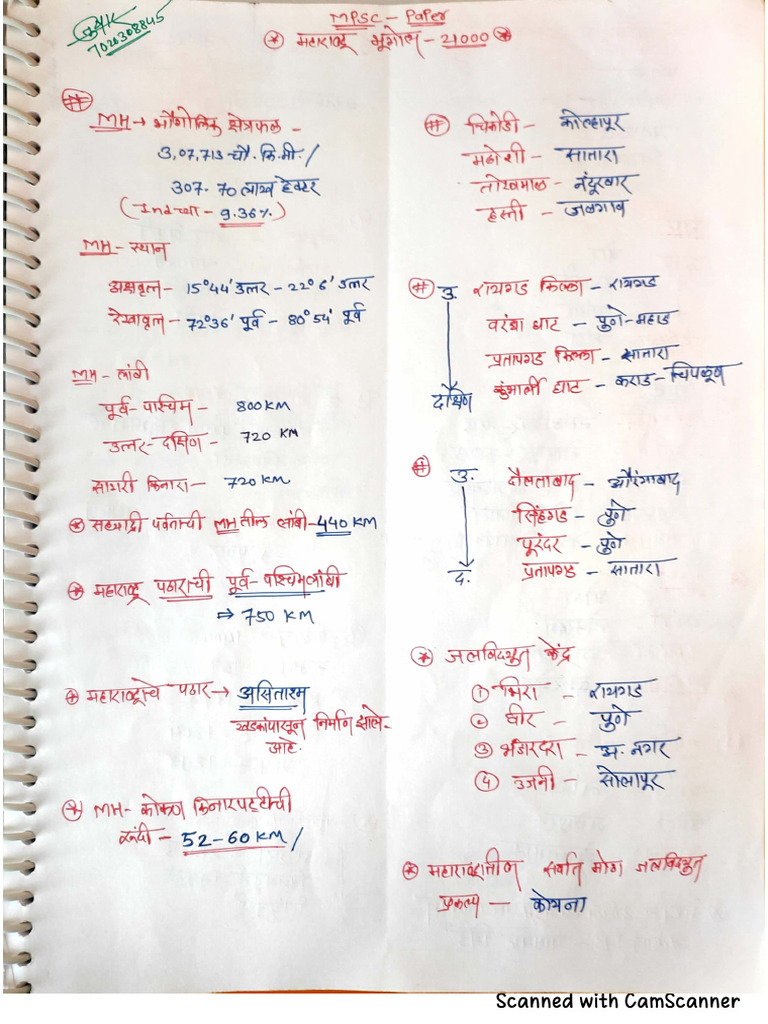 7020308845
MPSC - Paper
महाराष्ट्र भूगोल - 21000
MH → भौगोलिक क्षेत्रफळ -
3,07,713 चौ. कि.मी. /
307.70 लाख हेक्टर
( Ind च्या - 9.36% )
MH - स्थान
अक्षवृत्त - 15°44' उत्तर - 22°6' उत्तर
रेखावृत्त - 72°36' पूर्व - 80°54' पूर्व
MH - लांबी
पूर्व - पश्चिम - 800 KM
उत्तर - दक्षिण - 720 KM
सागरी किनारा - 720 KM
सह्याद्री पर्वताची MH तील लांबी - 440 KM
महाराष्ट्र पठाराची पूर्व - पश्चिम लांबी
⇒ 750 KM
महाराष्ट्राचे पठार → असिताश्म
खडकांपासून निर्माण झाले -
आहे.
MH - कोकण किनारपट्टीची
रुंदी - 52 - 60 KM /
# चिकोडी - कोल्हापूर
- सातारा
तोरणमाळ - नंदूरबार
हस्ती - जळगाव
# उ. रायगड किल्ला - रायगड
वरंधा घाट - पुणे - महाड
प्रतापगड किल्ला - सातारा
दक्षिण कुंभार्ली घाट - कराड - चिपळूण
# उ. दौलताबाद - औरंगाबाद
सिंहगड - पुणे
पूरंदर - पुणे
द. प्रतापगड - सातारा
जलविद्युत केंद्र
① भिरा - रायगड
② वीर - पुणे
③ भंडारदरा - अ. नगर
④ उजनी - सोलापूर
महाराष्ट्रातील सर्वात मोठा जलविद्युत
प्रकल्प - कोयना
Scanned with CamScanner